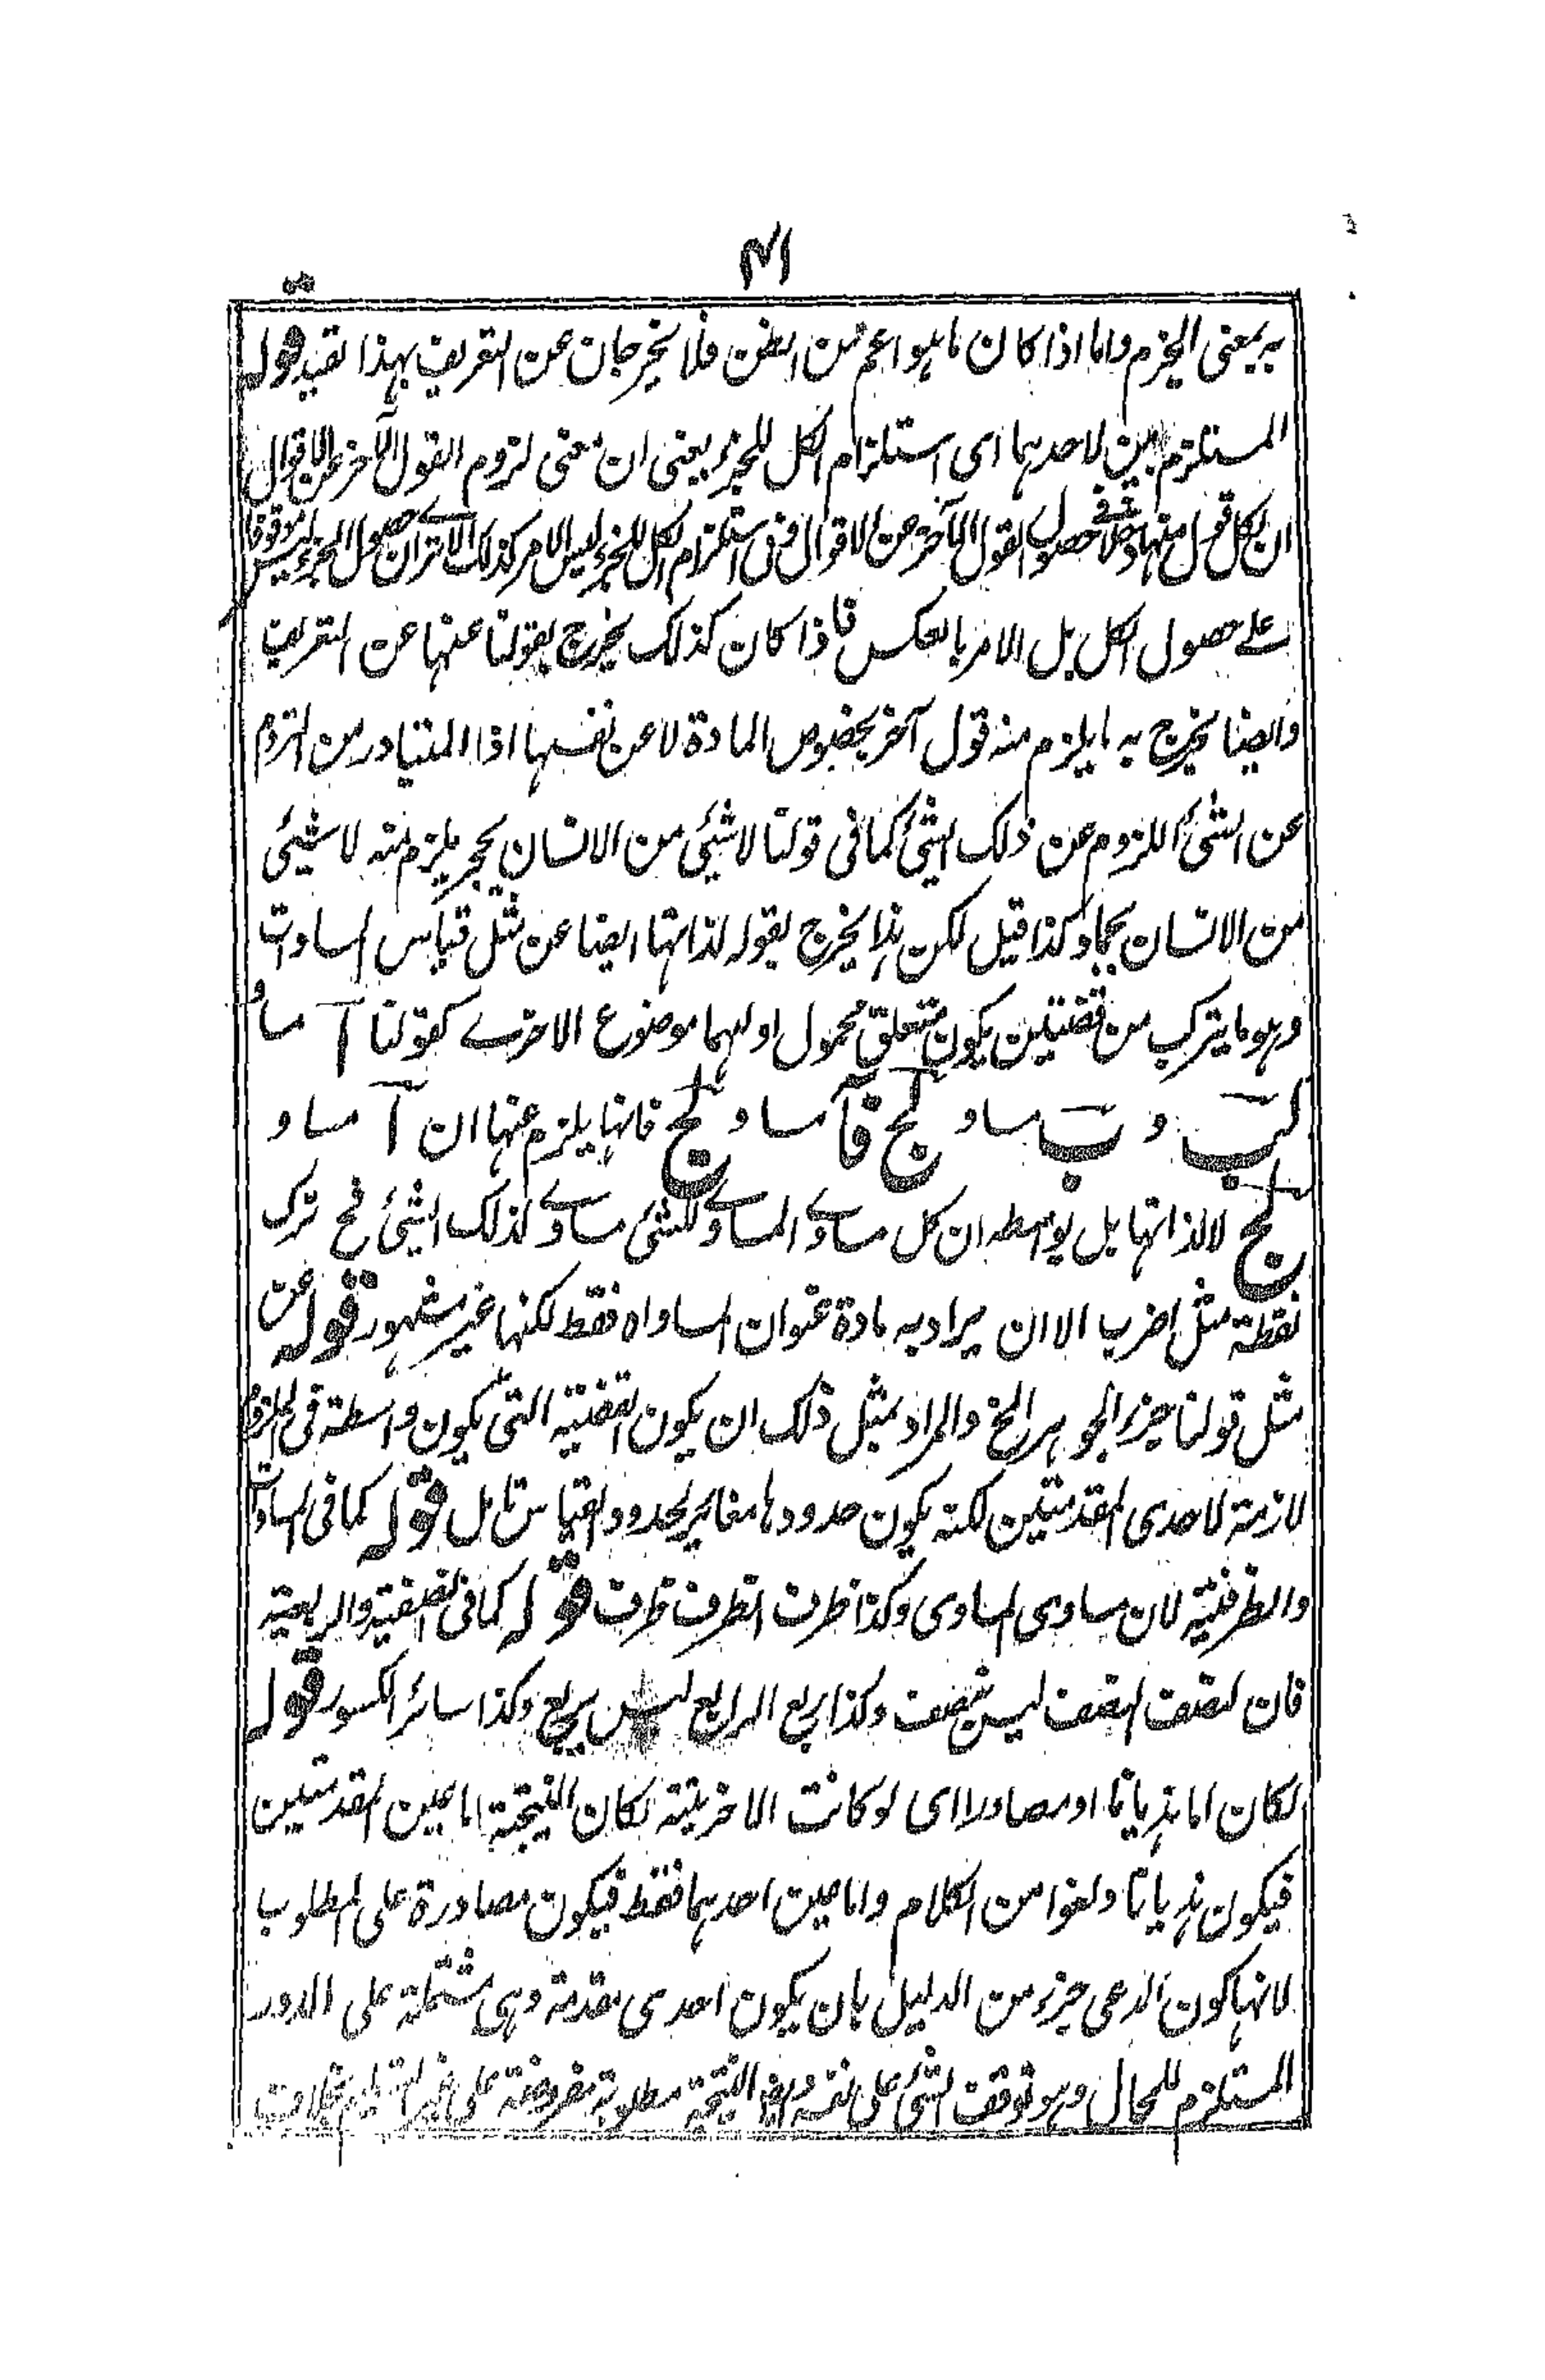 ٤١
به بمعنى الجزم واما اذا كان ما هو اعم من الظن فلا يخرجان عن التعريف بهذا القيد قوله
المستلزمين لاحدهما اى استلزام الكل للجزء يعنى ان معنى لزوم القول الآخر عن الاقوال
ان لكل قول منها دخلا فى حصول القول الآخر من الاقوال وفى استلزام الكل للجزء ليس الامر كذلك حصول الجزء ليس موقوفا
على حصول الكل بل الامر بالعكس فاذا كان كذلك يخرج بقولنا عنها عن التعريف
وايضا يخرج به ما يلزم منه قول آخر بخصوص المادة لا عن نفسها اذ المتبادر من اللزوم
عن الشئ اللزوم عن ذلك الشئ كما فى قولنا لا شئ من الانسان بحجر يلزم منه لا شئ
من الانسان بجماد كذا قيل لكن هذا يخرج بقوله لذاتها ايضا عن مثل قياس المساوات
وهو ما يتركب من قضيتين يكون متعلق محمول اوليهما موضوع الاخرے كقولنا آ مساو
لب و ب مساو لج فآ مساو لج فانها يلزم عنها ان آ مساو
لج لا لذاتها بل بواسطه ان كل مساوے المساوے للشئ مساوے لذلك الشئ فح ترك
لفظة مثل اضرب الا ان يراد به مادة عنوان المساواه فقط لكنها غير مشهور قوله عن
مثل قولنا جزء الجوهر الخ والمراد بمثل ذلك ان يكون القضية التى يكون واسطة فى اللزوم
لازمة لاحدى المقدمتين لكنه يكون حدودها مغاير لحدود القياس تامل قوله كما فى المساوات
والظرفية لان مساوى المساوى وكذا ظرف الظرف ظرف قوله كما فى النصفية والربعية
فان نصف النصف ليس بنصف وكذا ربع الربع ليس بربع وكذا سائر الكسور قوله
لكان اما هذيانا او مصادرا اى لو كانت الاخريته لكان النتيجة اما عين المقدمتين
فيكون هذيانا ولغوا من الكلام واما عين احدهما فقط فيكون مصادرة على المطلوب
لانها كون المدعى جزء من الدليل بان يكون احدى مقدمة وهى مشتملة على الدور
المستلزم للمحال وهو توقف الشئ على نفسه وايضا النتيجة مطلوبة مفروضة على غير التسليم بخلاف